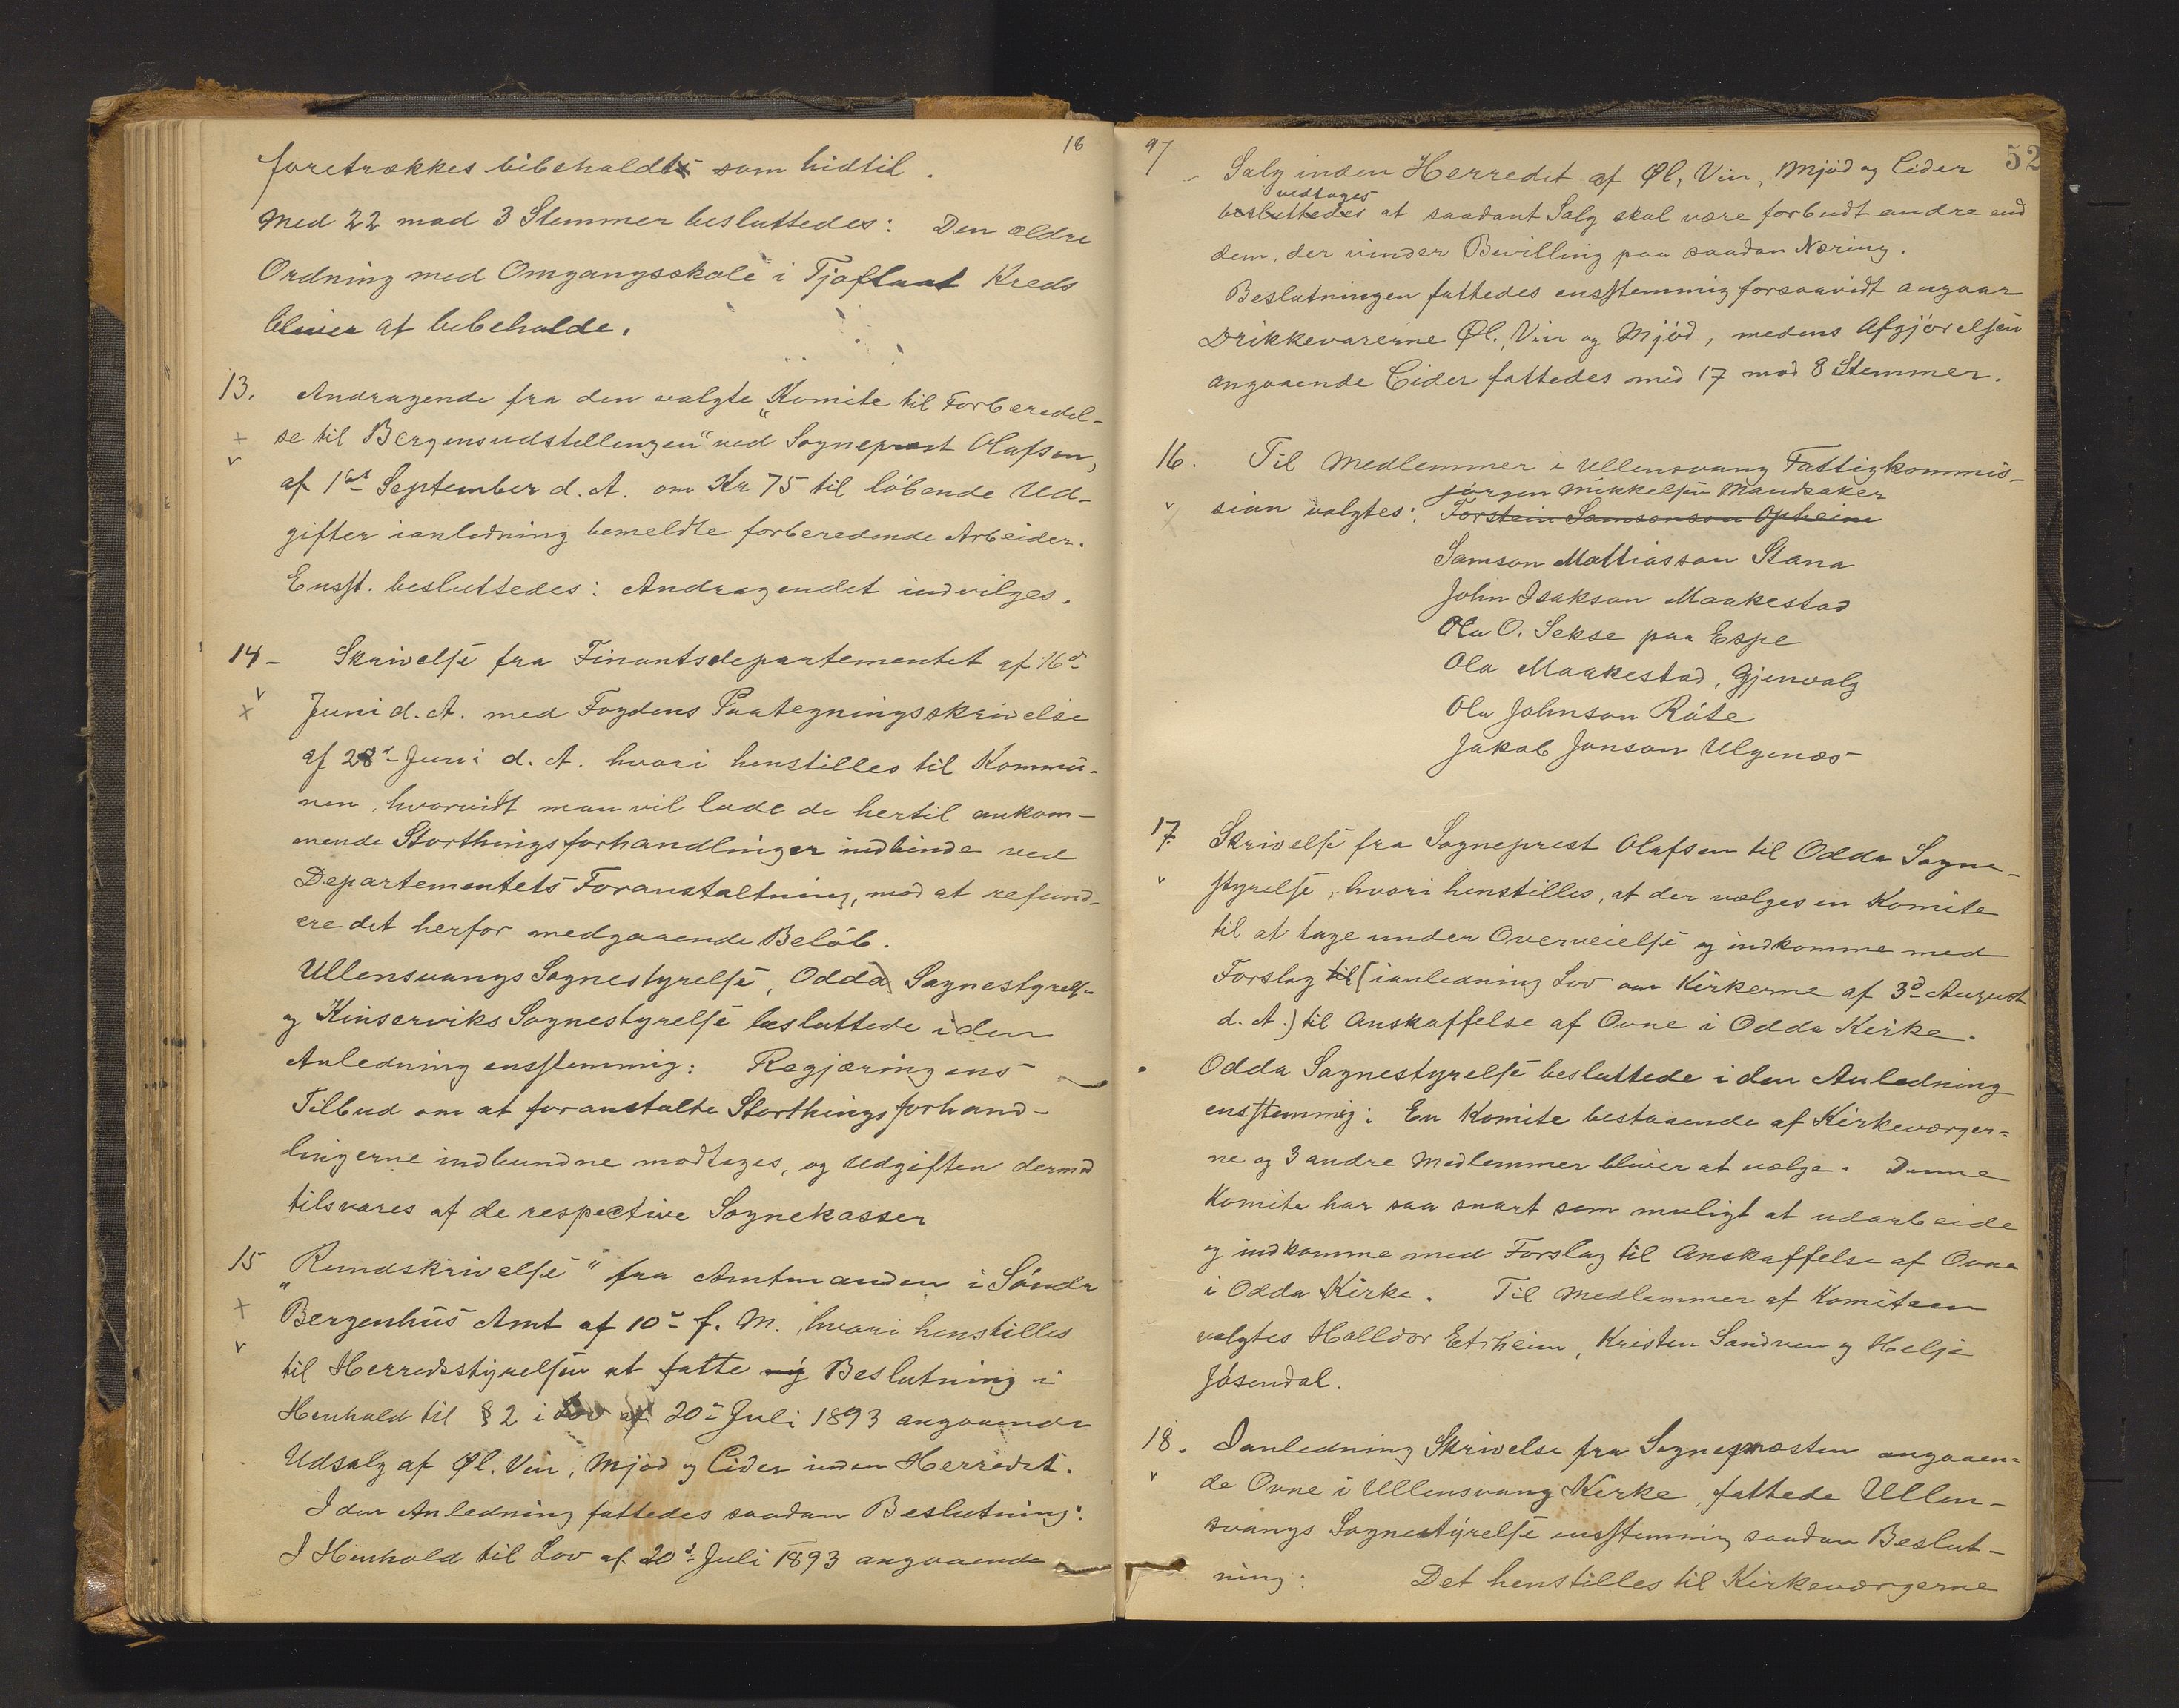 18
foretrækkes bibeholdt som hidtil.
Med 22 mod 3 Stemmer besluttedes: Den ældre
Ordning med Omgangsskole i Tjoflaat Kreds
bliver at bebeholde.
13. Andragende fra den valgte „Komite til Forberedel-
se til Bergensudstillingen" ved Sogneprest Olafsen,
af 1ste September d. A. om Kr 75 til löbende Ud-
gifter ianledning bemeldte forberedende Arbeider.
Ensst. besluttedes: Andragendet indvilges.
14 - Skrivelse fra Finantsdepartementet af 16d
Juni d. A. med Fogdens Paategningsskrivelse
af 28d Juni d. A. hvori henstilles til Kommu-
nen, hvorvidt man vil lade de hertil ankom-
mende Storthingsforhandlinger indbinde ved
Departementets Foranstaltning, mod at refund-
ere det herfor medgaaende Belöb.
Ullensvangs Sognestyrelse, Odda Sognestyrelse
og Kinserviks Sognestyrelse besluttede i den
Anledning ensstemmig: Regjæringens
Tilbud om at foranstalte Storthingsforhand-
lingerne indbundne modtages, og Udgiften dermed
tilsvares af de respective Sognekasser
15 „Rundskrivelse" fra Amtmanden i Söndre
Bergenhus Amt af 10d f. M., hvori henstilles
til Herredsstyrelsen at fatte Beslutning i
Henhold til § 2 i Lov af 20d Juli 1893 angaaende
Udsalg af Øl, Vin, Mjöd og Cider inden Herredet.
I den Anledning fattedes saadan Beslutning:
I Henhold til Lov af 20d Juli 1893 angaaende
97
52
Salg inden Herredet af Øl, Vin, Mjöd og Cider
vedtages
besluttedes at saadant Salg skal være forbudt andre end
dem, der vinder Bevilling paa saadan Næring.
Beslutningen fattedes ensstemmig forsaavidt angaar
Drikkevarerne Øl, Vin og Mjöd, medens Afgjörelsen
angaaende Cider fattedes med 17 mod 8 Stemmer.
16. Til Medlemmer i Ullensvang Fattigkommis-
Jörgen Mikkelsen Mandsaker
sion valgtes: Torstein Samsonson Opheim
Samson Mathiasson Stana
John Isakson Maakestad
Ola O. Sekse paa Espe
Ola Maakestad, Gjenvalg
Ola Johnson Röte
Jakob Jonson Ulgenæs
17. Skrivelse fra Sogneprest Olafsen til Odda Sogne-
styrelse, hvori henstilles, at der vælges en Komite
til at tage under Overveielse og indkomme med
Forslag til (ianledning Lov om Kirkerne af 3d August
d. A.) til Anskaffelse af Ovne i Odda Kirke.
Odda Sognestyrelse besluttede i den Anledning
ensstemmig: En Komite bestaaende af Kirkeværger-
ne og 3 andre Medlemmer bliver at vælge. Denne
Komite har saa snart som muligt at udarbeide
og indkomme med Forslag til Anskaffelse af Ovne
i Odda Kirke. Til Medlemmer af Komiteen
valgtes Halldor Eitrheim, Kristen Sandven og Helje
Jösendal.
18. Ianledning Skrivelse fra Sognepræsten angaaen-
de Ovne i Ullensvang Kirke, fattede Ullen-
svangs Sognestyrelse ensstemmig saadan Beslut-
ning: Det henstilles til Kirkeværgerne